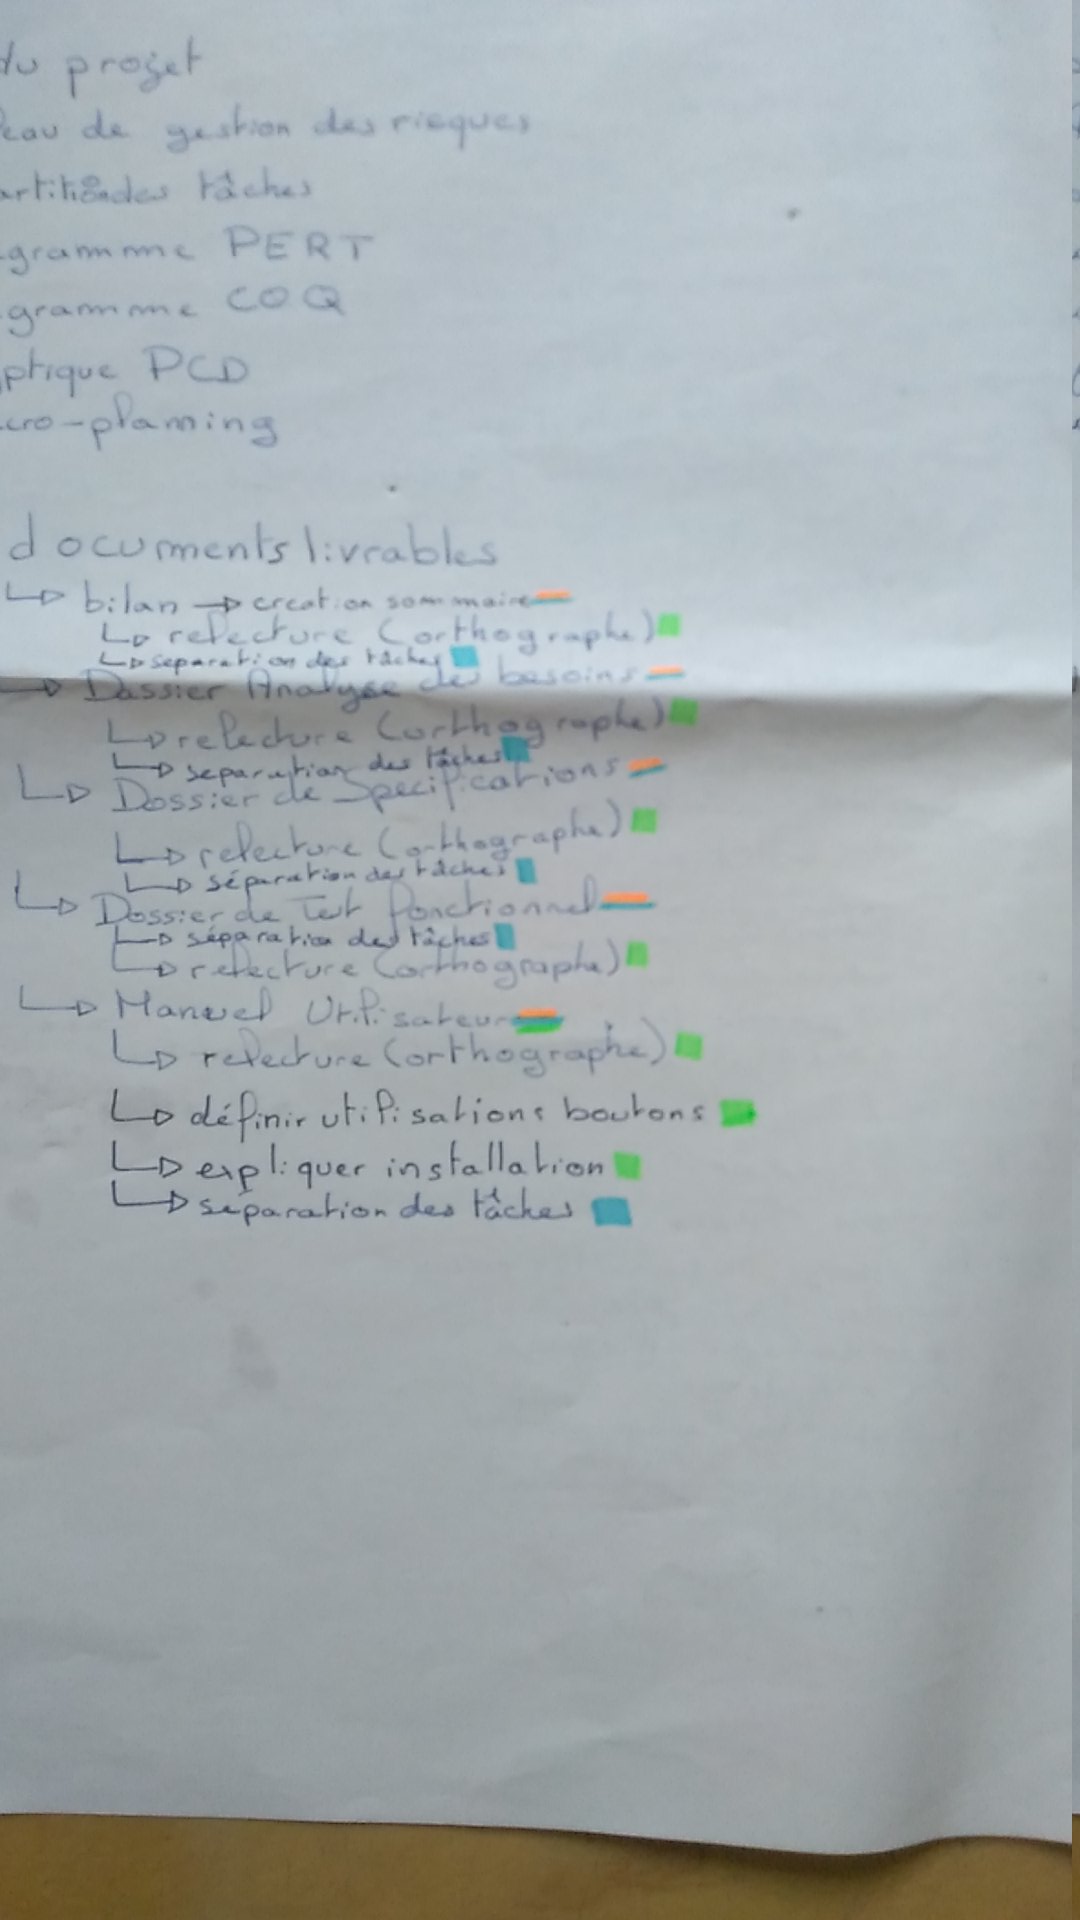 du projet
eau de gestion des risques
artition des tâches
gramme PERT
gramme COQ
ptique PCD
cro-planning
documents livrables
bilan → creation sommaire
relecture (orthographe)
separation des tâches
Dossier Analyse des besoins
relecture (orthographe)
separation des tâches
Dossier de Specifications
relecture (orthographe)
séparation des tâches
Dossier de Test fonctionnel
séparation des tâches
relecture (orthographe)
Manuel Utilisateur
relecture (orthographe)
définir utilisations boutons
expliquer installation
séparation des tâches